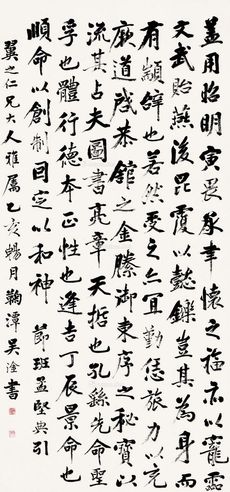 蓋用昭明寅畏承聿懷之福亦以寵靈
文武貽燕後昆覆以懿鑠豈其為身而
有顓辭也若然受之亦宜勤恁旅力以充
厥道啟恭館之金縢御東序之秘寶以
流其占夫圖書亮章天哲也孔繇先命聖
孚也體行德本正性也逢吉丁辰景命也
順命以創制因定以和神 節班孟堅典引
翼之仁兄大人雅屬乙亥暢月鞠潭吳淦書